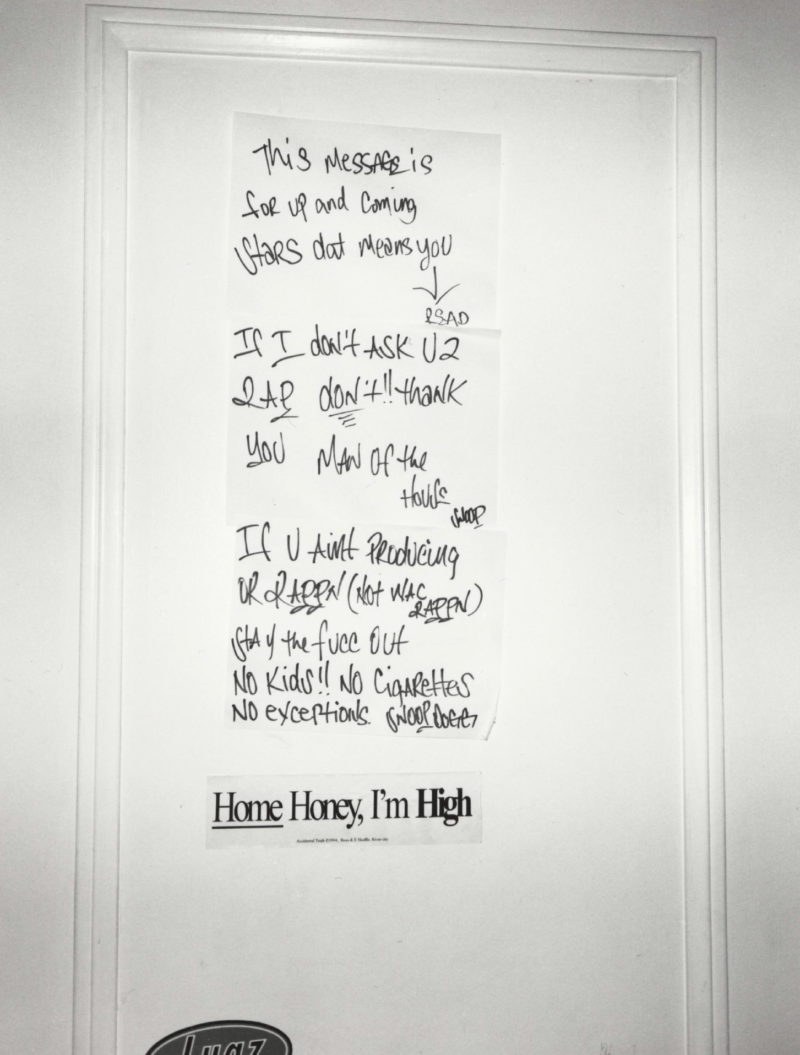 This Message is
for up and coming
stars dat means you
READ
If I don't ASK U 2
RAP don't!! thank
you MAN Of the
House
SNOOP
If U Aint Producing
OR RAPPN (Not WAC
RAPPN)
stay the fucc out
No Kids!! NO Cigarettes
No exceptions. SNOOP DOGG
Home Honey, I'm High
Lugz